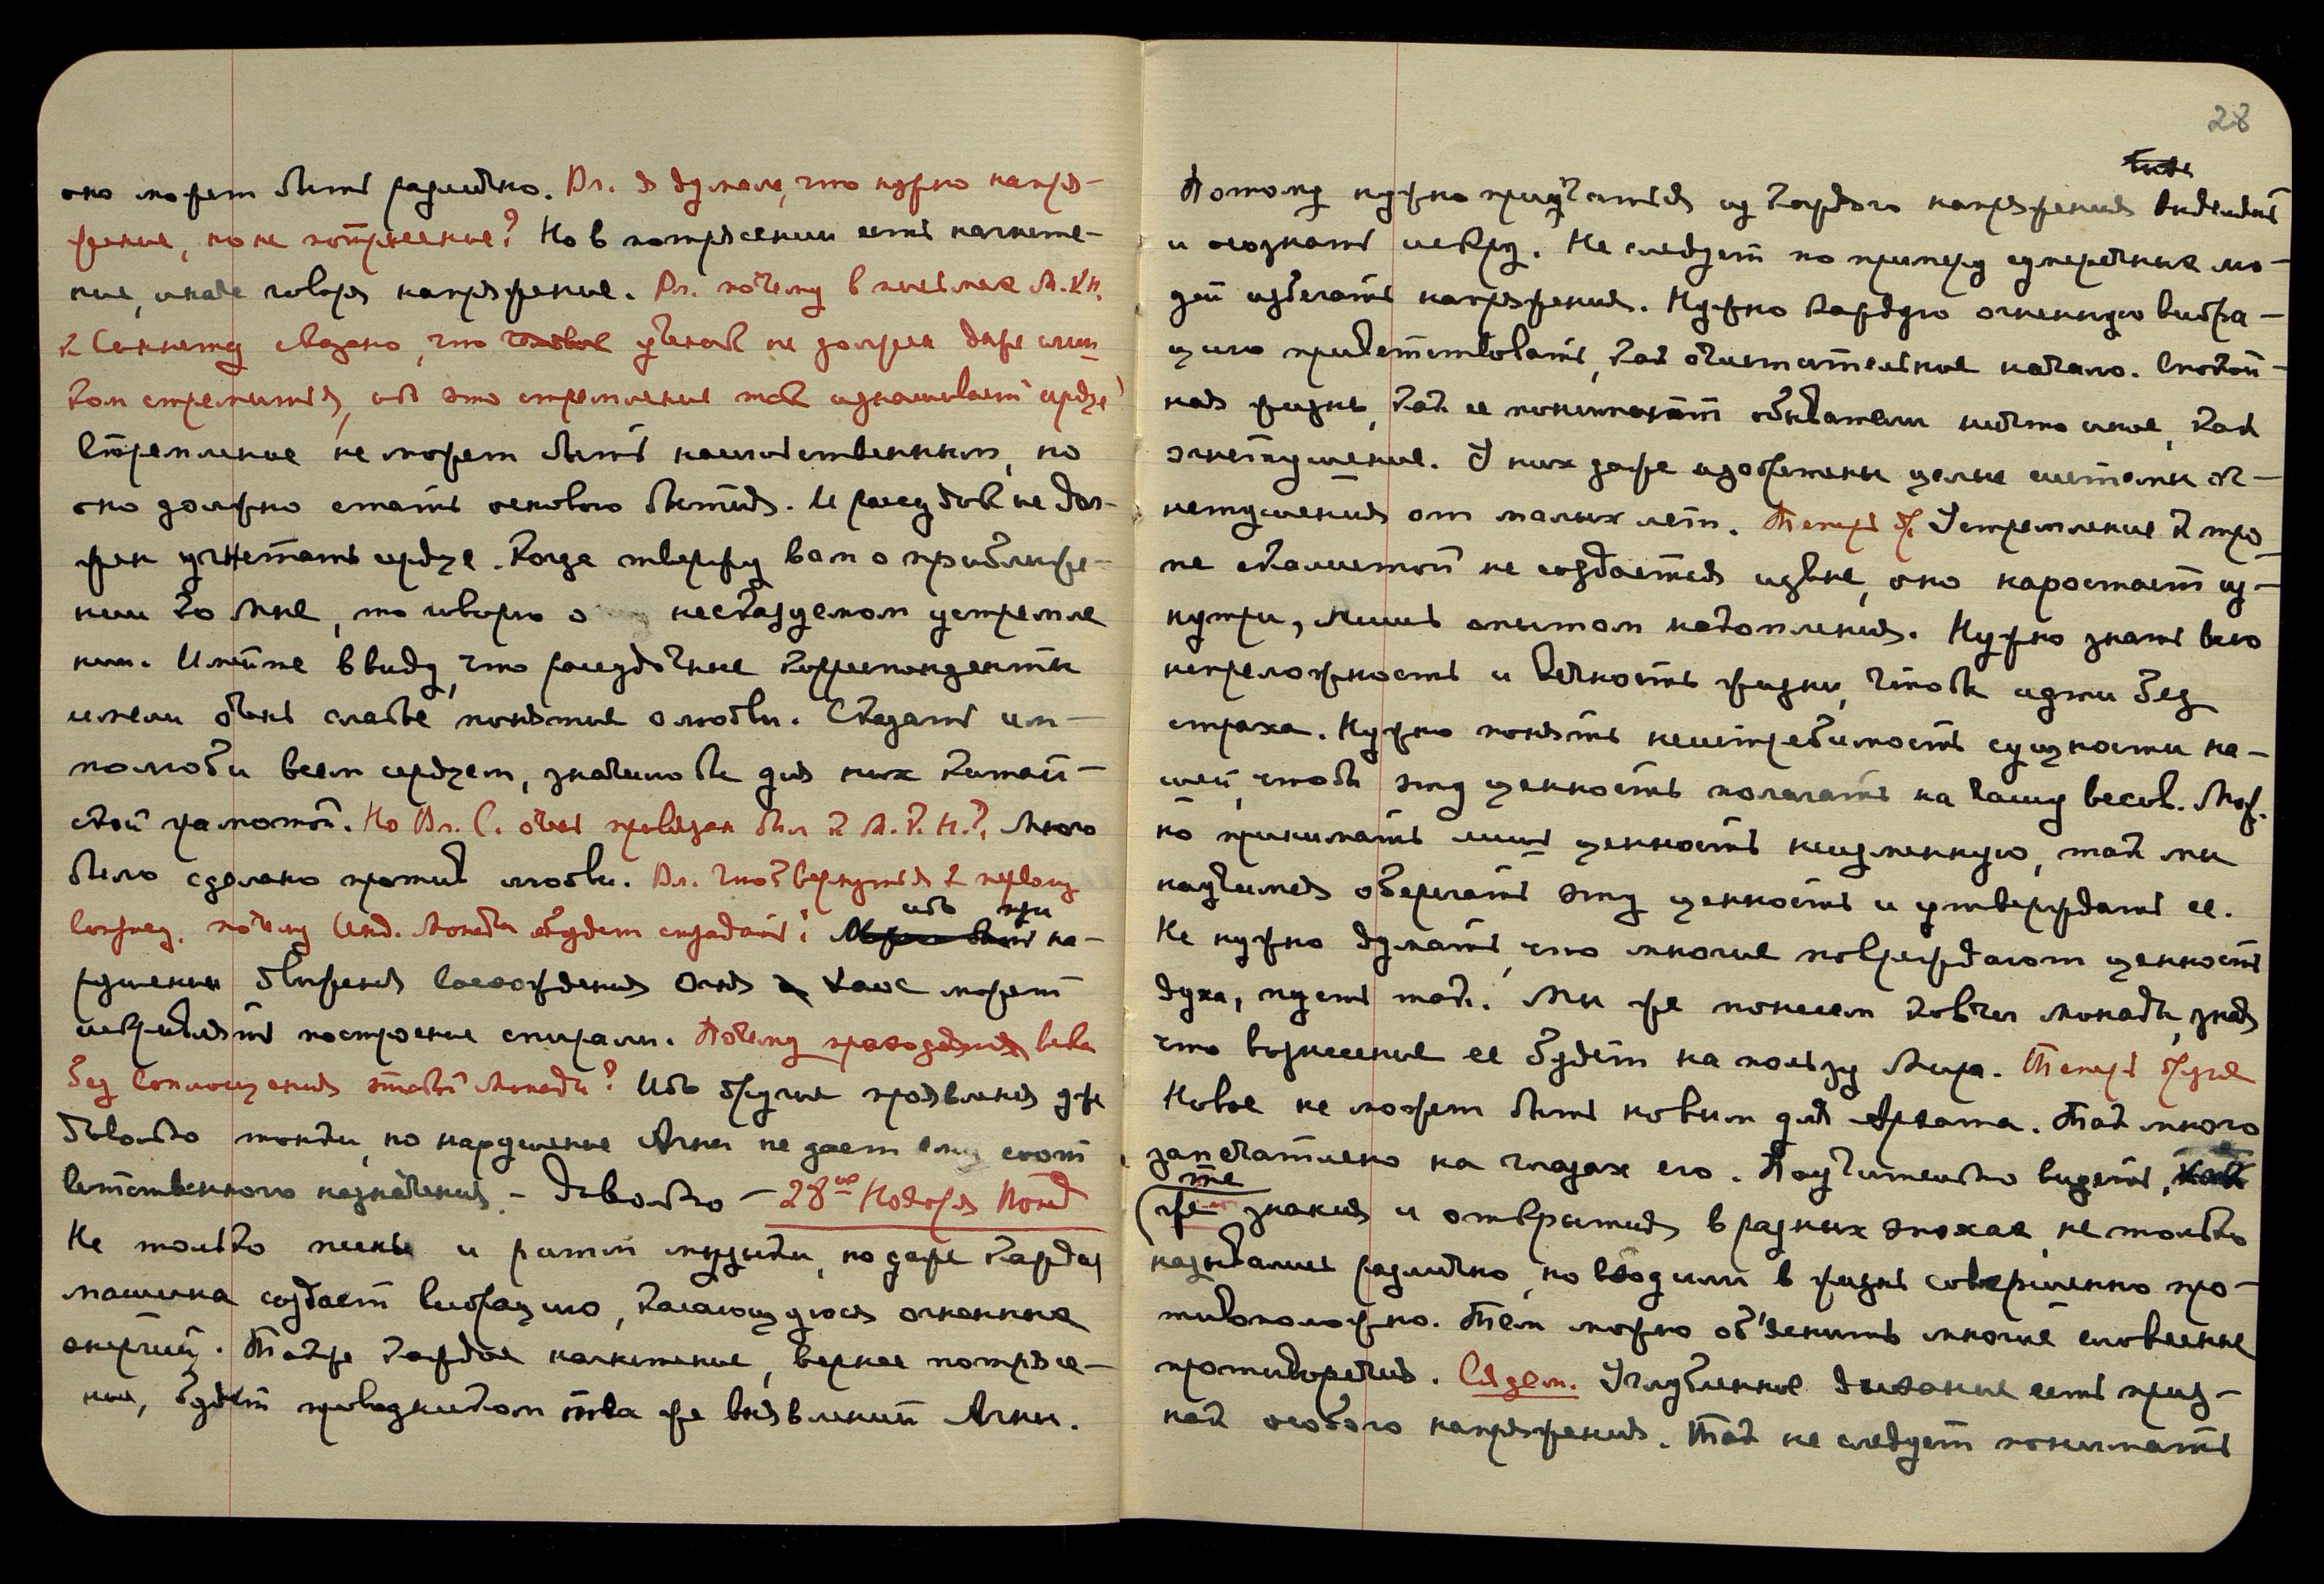 оно может быть различно. Вл. Я думала, что нужно напря-
жение, но не потрясение? Но в потрясении есть нагнете-
ние, иначе говоря напряжение. Вл. почему в письмах М.
к Синнету сказано, что ученик не должен даже слиш
ком стремиться, ибо это стремление так изнашивает сердце?
Стремление не может быть насильственным, но
оно должно стать основою бытия. И рассудок не дол-
жен угнетать сердце. Когда твержу вам о приближе-
нии ко Мне, то говорю о несказуемом устремле
нии. Имейте ввиду, что рассудочные корреспонденты
имели очень слабое понятие о любви. Сказать им —
полюби всем сердцем, значило бы для них китай-
ской грамотой. Но Вл. С. очень привязан был к М. К. Н.?, Много
было сделано против любви. Вл. чтоб вернуться к первому
вопросу, почему Инд. Монада будет страдать? ибо при на-
рушении сближения восхождения Огня хаос может
искривлять построение спирали. Почему проходят века
без воплощения этой Монады? Ибо другие проявления уже
довольно тонки, но нарушение Агни не дает ему соот
ветственного назначения. – Довольно – 28ое Ноября Понед
Не только пение и ритм музыки, но даже каждая
машина создает вибрацию, касающуюся огненных
энергий. Также каждое нагнетение, вернее потрясе-
ние, будет проводником тех же выявлений Агни.
28
Потому нужно приучаться из каждого напряжения выделять
и осознать искру. Не следует по примеру сумеречных лю-
дей избегать напряжения. Нужно каждую огненную вибра-
цию приветствовать, как очистительное начало. Спокой-
ная жизнь, как ее понимают обыватели ничто иное, как
огнетушение. У них даже изобретены целые системы ог-
нетушения от малых лет. Теперь др. Устремление к тро
пе скалистой не создается извне, оно наростает из-
нутри, лишь опытом накопления. Нужно знать всю
непреложность и вечность жизни, чтобы идти без
страха. Нужно понять неистребимость сущности на-
шей, чтобы эту ценность полагать на чашу весов. Мож.
но принимать лишь ценность неизменную, так мы
научимся оберегать эту ценность и утверждать ее.
Не нужно думать, что многие повреждают ценность
духа, пусть так. Мы же понесем ковчег Монады, зная
что вознесение ее будет на пользу Мира. Теперь другое
Новое не может быть новым для Архата. Так много
запечатлено на глазах его. Поучительно видеть, как
те
(же знания и открытия в разных эпохах, не только
назывались различно, но входили в жизнь совершенно про-
тивоположно. Тем можно об'яснить многие словесные
противоречия. Сядем. Углубленное дыхание есть приз-
нак особого напряжения. Так не следует понимать